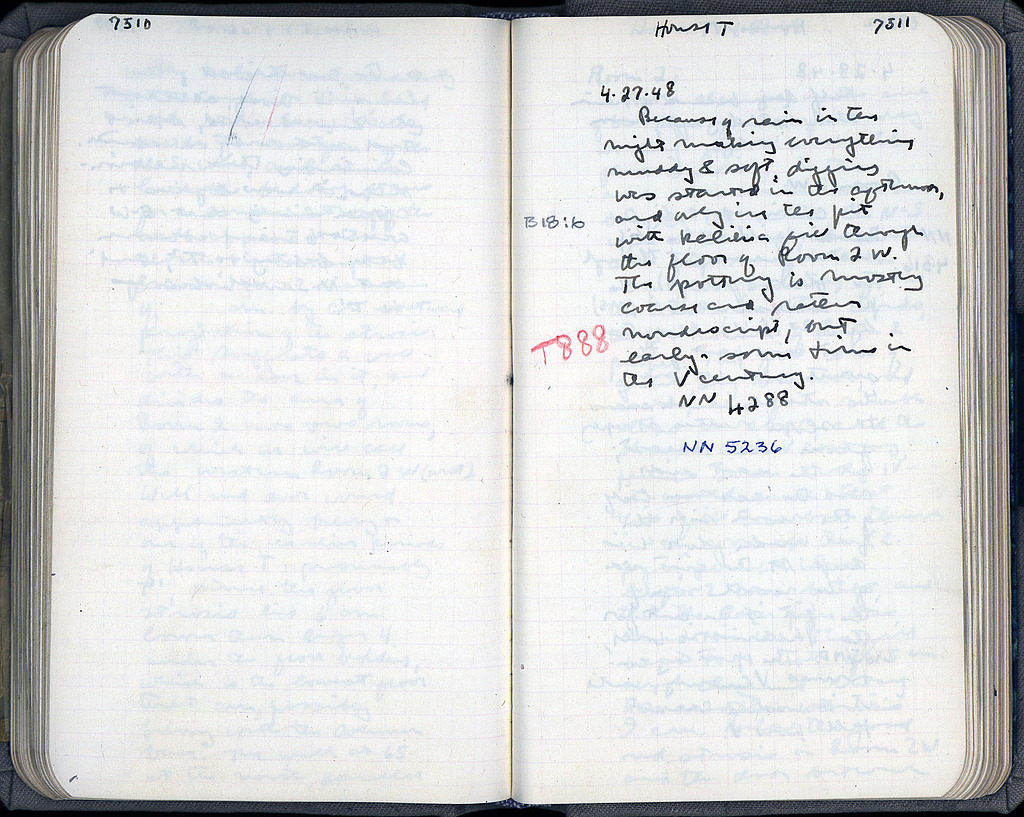 7510
House T 7511
4.27.48
Because of rain in the
night making everything
muddy & soft, digging
was started in the afternoon,
B 18:6 and only in the pit
with fill through
the floor of Room 2 W.
The pottery is mostly
coarse and rather
T888 nondescript, but
early - some time in
the V century.
NN 4288
NN 5236